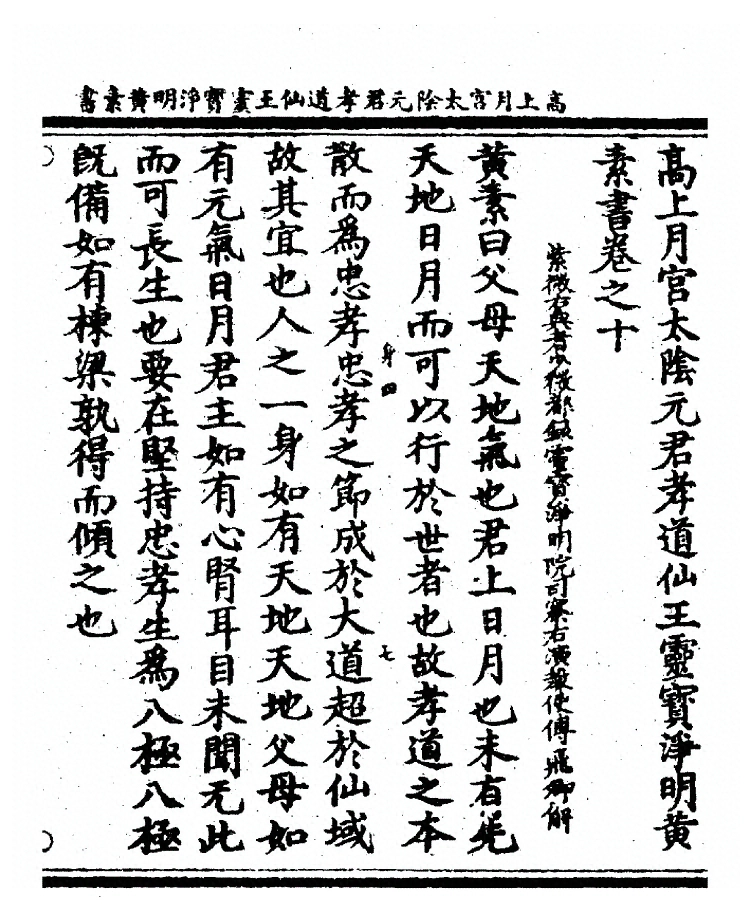 高上月宮太陰元君孝道仙王靈寶淨明黄素書
高上月宮太陰元君孝道仙王靈寶淨明黄
素書卷之十
紫微右典者九微都錄靈寶淨明院司察右演教使傅飛卿解
黄素曰父母天地氣也君上日月也未有先
天地日月而可以行於世者也故孝道之本
散而爲忠孝忠孝之節成於大道超於仙域
身四
七
故其宜也人之一身如有天地天地父母如
有元氣日月君主如有心腎耳目未聞无此
而可長生也要在堅持忠孝生爲八極八極
旣備如有棟梁孰得而傾之也